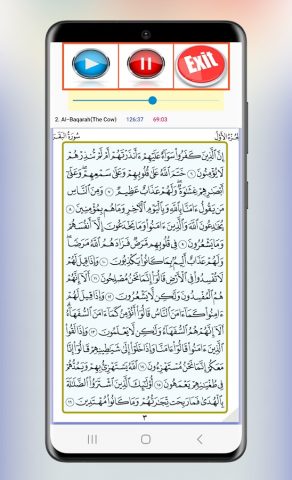 Exit
2. Al-Baqarah(The Cow) 126:37 69:03
الجزء الأول سورة البقرة
إِنَّ ٱلَّذِينَ كَفَرُوا۟ سَوَآءٌ عَلَيْهِمْ ءَأَنذَرْتَهُمْ أَمْ لَمْ تُنذِرْهُمْ
لَا يُؤْمِنُونَ ٦ خَتَمَ ٱللَّهُ عَلَىٰ قُلُوبِهِمْ وَعَلَىٰ سَمْعِهِمْ وَعَلَىٰٓ
أَبْصَٰرِهِمْ غِشَٰوَةٌ وَلَهُمْ عَذَابٌ عَظِيمٌ ٧ وَمِنَ ٱلنَّاسِ
مَن يَقُولُ ءَامَنَّا بِٱللَّهِ وَبِٱلْيَوْمِ ٱلْـَٔاخِرِ وَمَا هُم بِمُؤْمِنِينَ ٨
يُخَٰدِعُونَ ٱللَّهَ وَٱلَّذِينَ ءَامَنُوا۟ وَمَا يَخْدَعُونَ إِلَّآ أَنفُسَهُمْ
وَمَا يَشْعُرُونَ ٩ فِى قُلُوبِهِم مَّرَضٌ فَزَادَهُمُ ٱللَّهُ مَرَضًا
وَلَهُمْ عَذَابٌ أَلِيمٌۢ بِمَا كَانُوا۟ يَكْذِبُونَ ١٠ وَإِذَا قِيلَ لَهُمْ
لَا تُفْسِدُوا۟ فِى ٱلْأَرْضِ قَالُوٓا۟ إِنَّمَا نَحْنُ مُصْلِحُونَ ١١ أَلَآ إِنَّهُمْ
هُمُ ٱلْمُفْسِدُونَ وَلَٰكِن لَّا يَشْعُرُونَ ١٢ وَإِذَا قِيلَ لَهُمْ
ءَامِنُوا۟ كَمَآ ءَامَنَ ٱلنَّاسُ قَالُوٓا۟ أَنُؤْمِنُ كَمَآ ءَامَنَ ٱلسُّفَهَآءُ
أَلَآ إِنَّهُمْ هُمُ ٱلسُّفَهَآءُ وَلَٰكِن لَّا يَعْلَمُونَ ١٣ وَإِذَا لَقُوا۟
ٱلَّذِينَ ءَامَنُوا۟ قَالُوٓا۟ ءَامَنَّا وَإِذَا خَلَوْا۟ إِلَىٰ شَيَٰطِينِهِمْ قَالُوٓا۟ إِنَّا
مَعَكُمْ إِنَّمَا نَحْنُ مُسْتَهْزِءُونَ ١٤ ٱللَّهُ يَسْتَهْزِئُ بِهِمْ وَيَمُدُّهُمْ
فِى طُغْيَٰنِهِمْ يَعْمَهُونَ ١٥ أُو۟لَٰٓئِكَ ٱلَّذِينَ ٱشْتَرَوُا۟ ٱلضَّلَٰلَةَ
بِٱلْهُدَىٰ فَمَا رَبِحَت تِّجَٰرَتُهُمْ وَمَا كَانُوا۟ مُهْتَدِينَ ١٦
٣